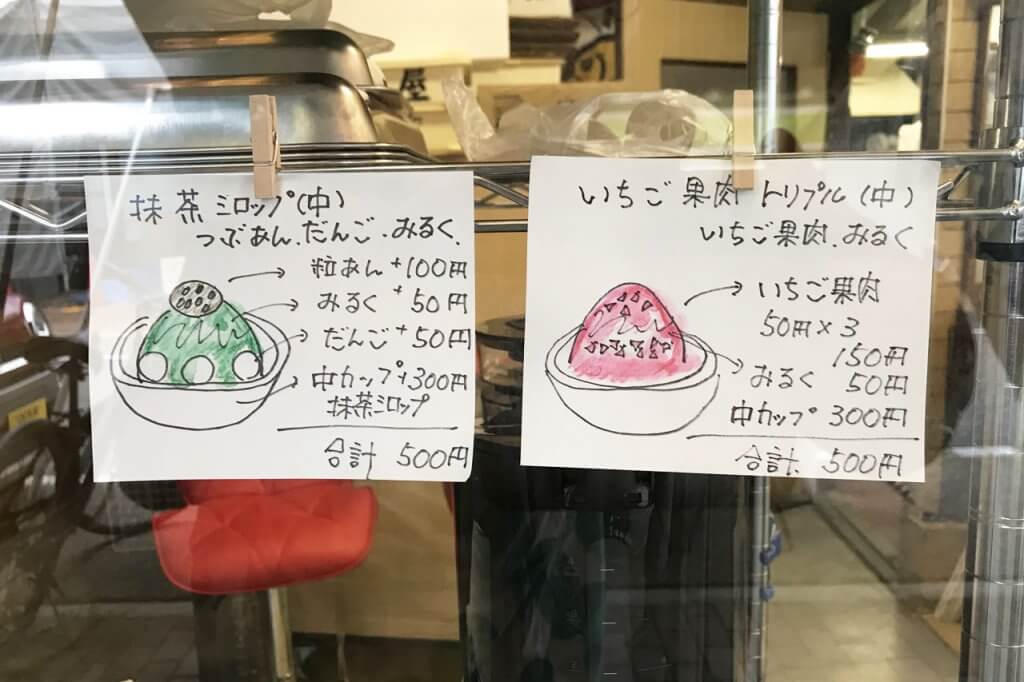 屋
抹茶ミロップ(中)
つぶあん.だんご.みるく.
粒あん+100円
みるく+50円
だんご+50円
中カップ+300円
抹茶ミロップ
合計 500円
いちご果肉トリプル(中)
いちご果肉.みるく
いちご果肉
50円×3
150円
みるく 50円
中カップ 300円
合計. 500円